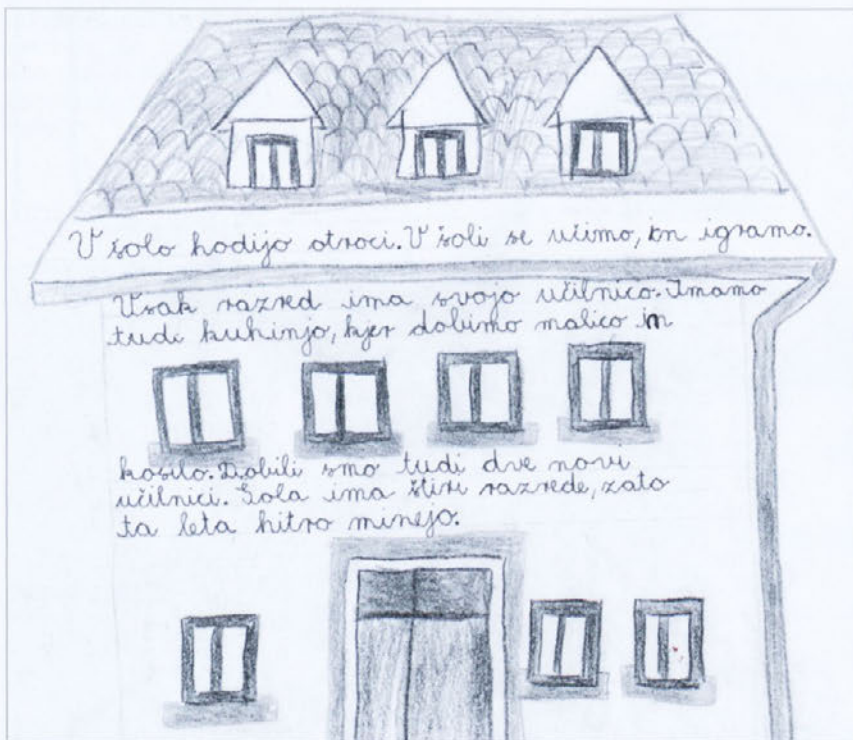 V šolo hodijo otroci. V šoli se učimo, in igramo.
Vsak razred ima svojo učilnico. Imamo
tudi kuhinjo, kjer dobimo malico in
kosilo. Dobili smo tudi dve novi
učilnici. Šola ima štiri razrede, zato
ta leta hitro minejo.